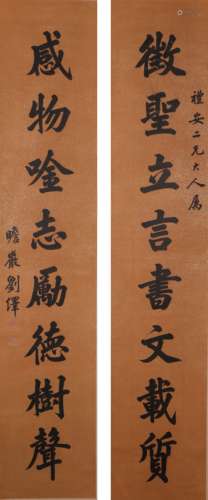 徵聖立言書文載質
禮安二兄大人属
感物唫志勵德樹聲
瞻巖劉繹